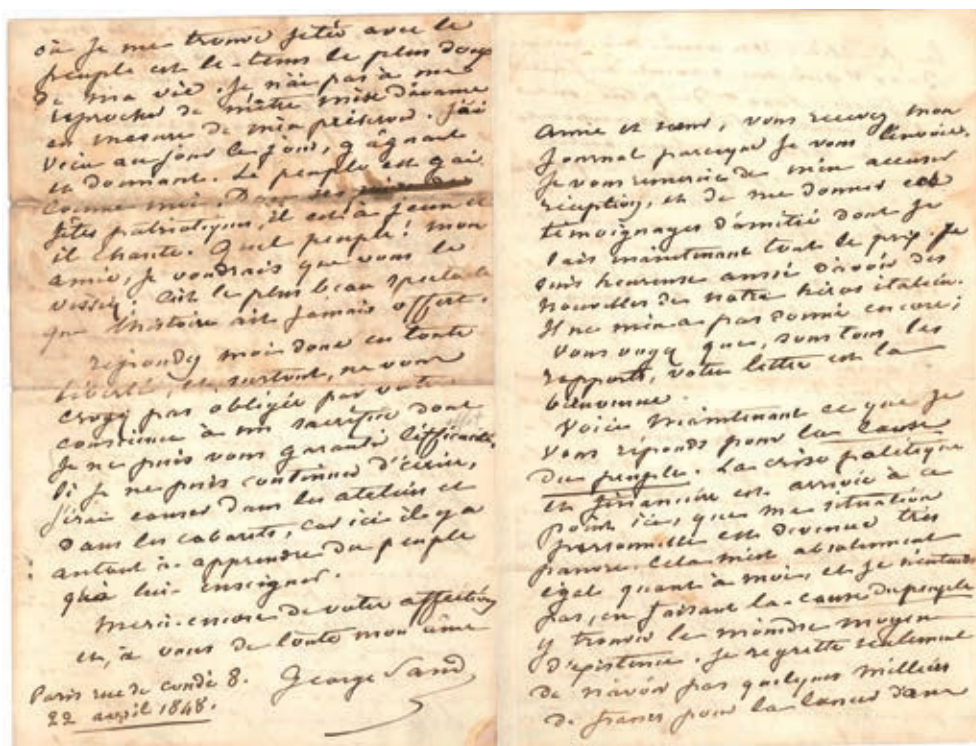 où je me trouve jetée avec le
peuple est le tems le plus doux
de ma vie. Je n'ai pas à me
reprocher de m'être mise d'avance
en mesure de m'en préserver. J'ai
vécu au jour le jour, gagnant
et donnant. Le peuple est gai
comme moi. Dans ses
fêtes patriotiques, il est à jeun et
il chante. Quel peuple! mon
amie, je voudrais que vous le
vissiez. C'est le plus beau spectacle
que l'histoire ait jamais offert.
répondez moi donc en toute
liberté, et, surtout, ne vous
croyez pas obligée par votre
conscience à un sacrifice dont
je ne puis vous garantir l'efficacité.
Si je ne puis continuer d'écrire,
j'irai causer dans les ateliers et
dans les cabarets, car ici il y a
autant à apprendre du peuple
qu'à lui enseigner.
Merci encore de votre affection
et, à vous de toute mon âme
George Sand
Paris rue de condé 8.
22 avril 1848.
Amie et sœur, vous recevez mon
journal parceque je vous l'envoie,
je vous remercie de m'en accuser
réception, et de me donner ces
témoignages d'amitié dont je
sais maintenant tout le prix. Je
suis heureuse aussi d'avoir des
nouvelles de notre héros italien.
Il ne m'en a pas donné encore;
Vous voyez que, sous tous les
rapports, votre lettre est la
bienvenue.
Voici maintenant ce que je
vous réponds pour la cause
du peuple. La crise politique
et financière est arrivée à ce
point ici, que ma situation
personnelle est devenue très
pauvre. Cela m'est absolument
égal quant à moi, et je n'entends
pas, en faisant la cause du peuple
y trouver le moindre moyen
d'existence. Je regrette seulement
de n'avoir pas quelques milliers
de francs pour la lancer